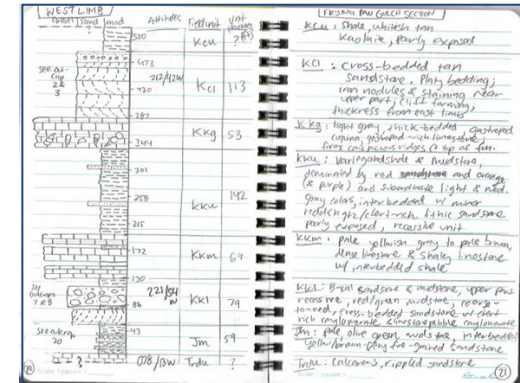 WEST LIMB
gravel sand mud
Attitudes
Field unit
Unit thickness (ft)
520
Kcu
?
473
see outcrop 2 & 3
212/42W
Kcl
113
430
387
Kkg
53
344
301
142
258
Kku
215
172
Kkm
64
130
see outcrops 2 & 8
86
Kkl
74
43
Jm
59
see outcrop 20
078/13W
Trdu
?
20
Kcu: Shale, whitish tan
Kaolinite, poorly exposed
Kcl: Cross-bedded tan
sandstone. Platy bedding;
iron nodules & staining near
upper part; cliff forming;
thickness from east limb
Kkg: light gray, thick-bedded gastropod
coquina, gastropod-rich limestone,
Kku: Variegated shale & mudstone,
dominated by red and orange
(& purple) and subordinate light & med.
gray colors, interbedded w/ minor
chert-rich lithic sandstone
poorly exposed, recessive unit.
Kkm: pale yellowish gray to pale brown,
dense limestone & shaley limestone
w/ interbedded shale
Kkl: Basal sandstone & mudstone, upper part
recessive, red/green mudstone,
cross-bedded sandstone w/ chert
rich conglomerate, & limestone pebble conglomerate
Jm: pale olive green mudstone, interbedded
yellow/brown fine-grained sandstone
Trdu: Calcareous, rippled sandstone
21